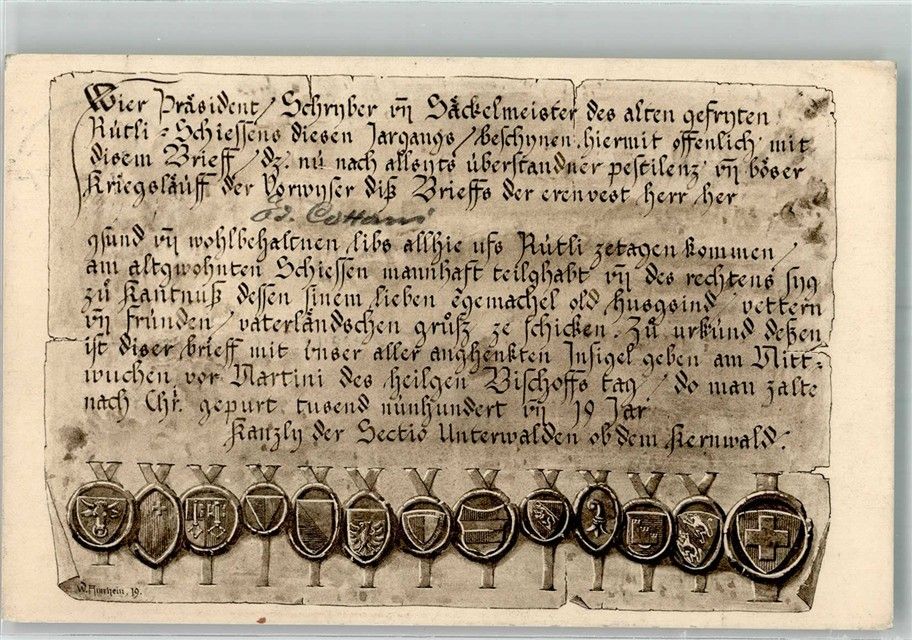 Wier Präsident / Schryber vn̄ Säckelmeister des alten gefryten
Rütli-Schiessens diesen Jargangs / beschynen hiermit offenlich mit
disem Brieff / dz nu nach allsyts überstandner pestilenz vn̄ böser
Kriegsläuff der Vorwyser diß Brieffs der erenvest herr her
Ed. Cattani
gsund vn̄ wohlbehaltnen libs allhie ufs Rütli zetagen kommen /
am altgwohnten Schiessen mannhaft teilghabt vn̄ des rechtens syg
zů Kantnuß dessen sinem lieben egemachel old husgsind / vettern
vn̄ fründen / vaterländschen grůß ze schicken. Zů urkund deßen
ist diser brieff mit vnser aller anghenkten Insigel geben am Mitt-
wuchen vor Martini des heilgen Bischoffs tag / do man zalte
nach Chr. gepurt tusend nünhundert vn̄ 19 Jar
Kanzly der Sectio Unterwalden ob dem Kernwald.
19.